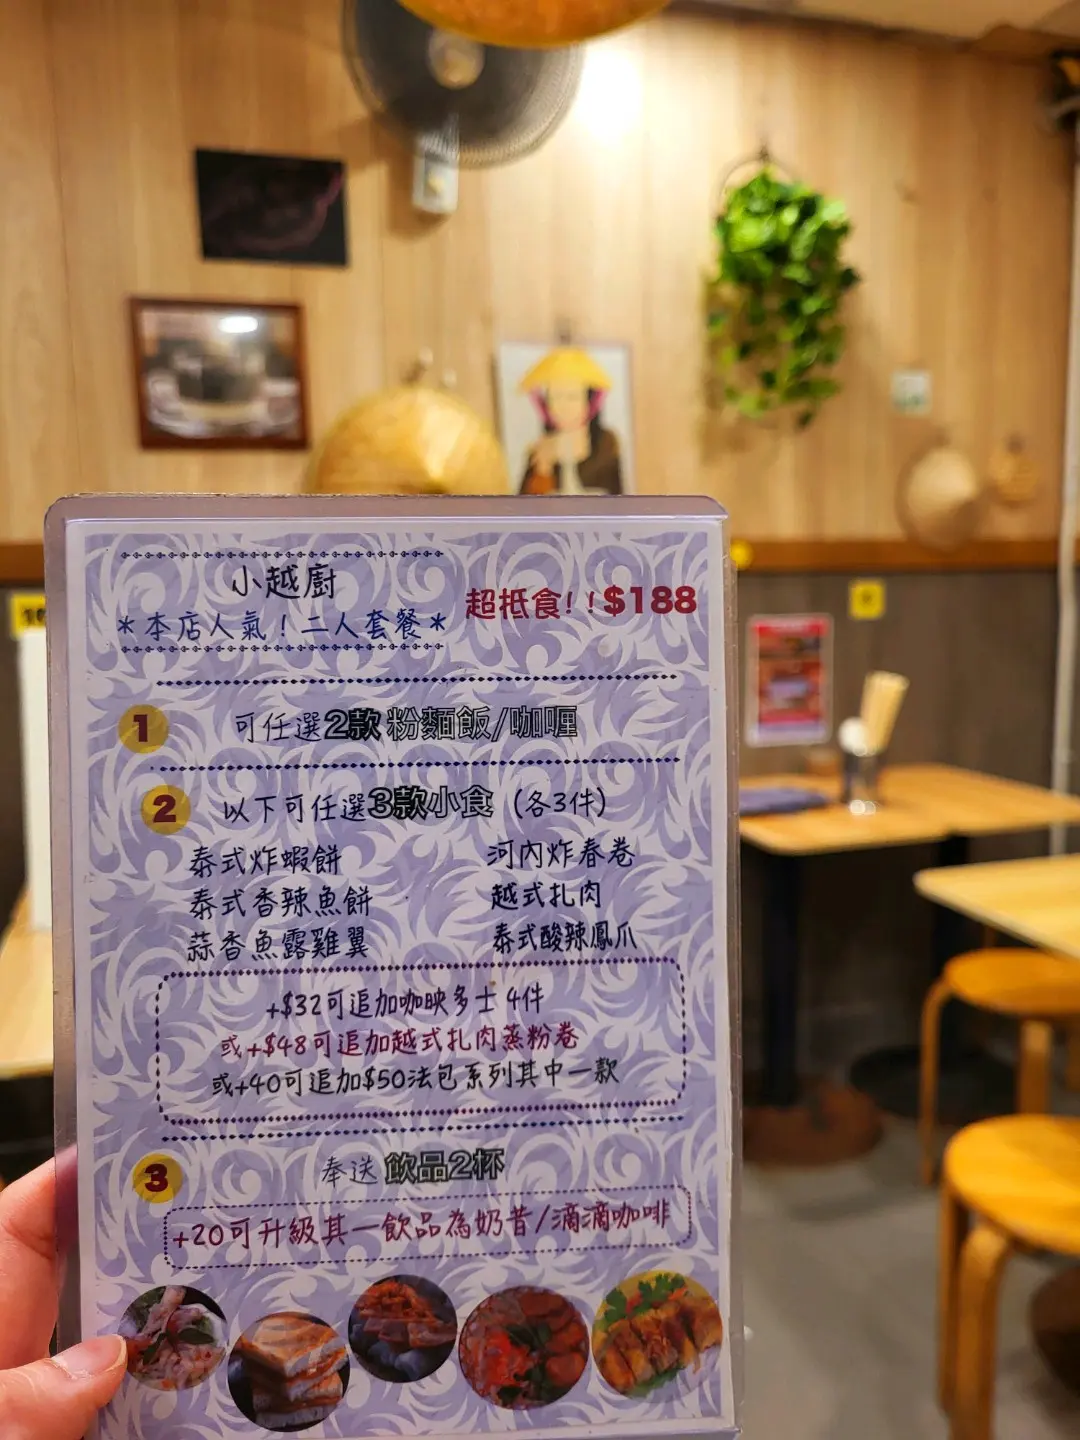 小越廚
*本店人氣！二人套餐*
超抵食!!$188
1 可任選2款粉麵飯/咖喱
2 以下可任選3款小食 (各3件)
泰式炸蝦餅 河內炸春卷
泰式香辣魚餅 越式扎肉
蒜香魚露雞翼 泰式酸辣鳳爪
+$32可追加咖央多士 4件
或+$48可追加越式扎肉蒸粉卷
或+40可追加$50法包系列其中一款
3 奉送 飲品2杯
+20可升級其一飲品為奶昔/滴滴咖啡